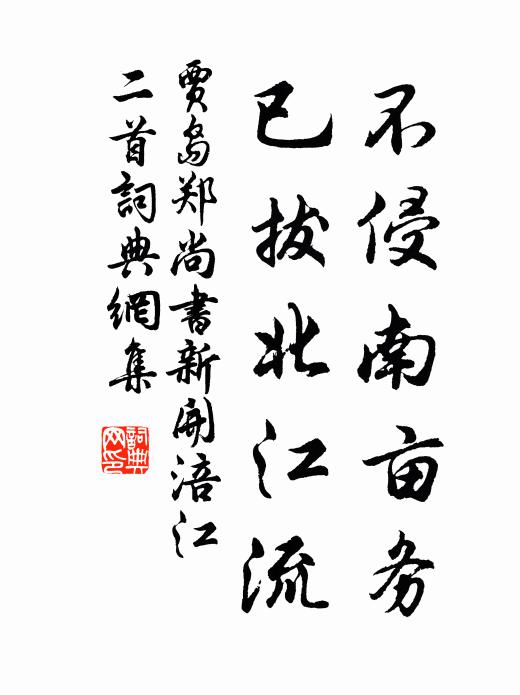 不侵南亩务
已拔北江流
贾岛郑尚書新開涪江
二首詞典網集
詞典
网印